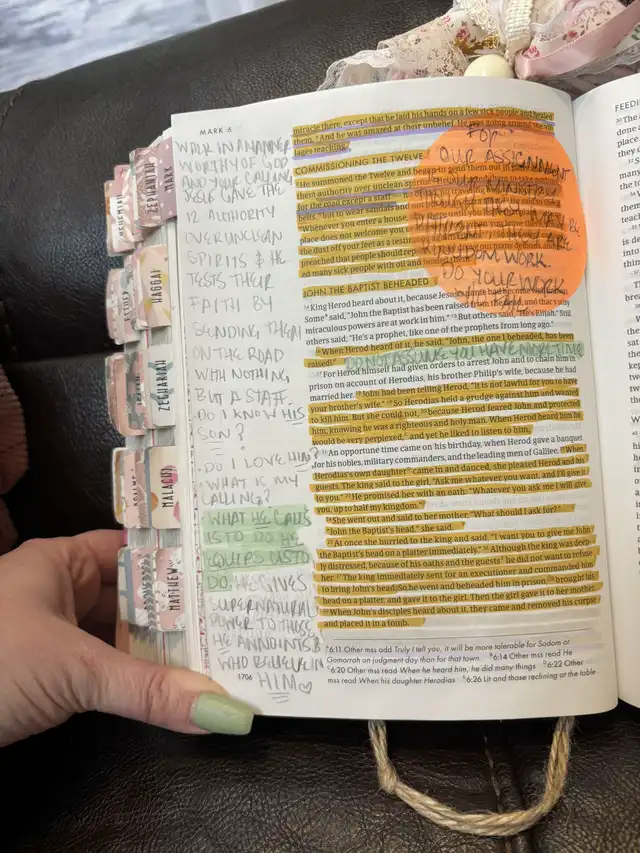 MARK 6
WALK IN A MANNER
WORTHY OF GOD
AND YOUR CALLING
JESUS GAVE THE
12 AUTHORITY
OVER UNCLEAN
SPIRITS & HE
TESTS THEIR
FAITH BY
SENDING THEM
ON THE ROAD
WITH NOTHING
BUT A STAFF.
DO I KNOW HIS
SON?
• DO I LOVE HIM?
• WHAT IS MY
CALLING?
• WHAT HE CALLS
US TO DO HE
EQUIPS US TO
DO. HE GIVES
SUPERNATURAL
POWER TO THOSE
HE ANNOINTS &
WHO BELIEVE IN
HIM ♡
1706
miracle there, except that he laid his hands on a few sick people and healed
them. ⁶And he was amazed at their unbelief. He was going around the vil-
lages teaching.
COMMISSIONING THE TWELVE
⁷He summoned the Twelve and began to send them out in
them authority over unclean spirits
for the road except a staff
belts, ⁹but to wear sandals
Whenever you enter a house,
place does not welcome you
the dust off your feet as a testi
preached that people should repe
ed many sick people with oil and
FOR
OUR ASSIGNMENT
KINGDOM WORK.
DO YOUR WORK
JOHN THE BAPTIST BEHEADED
¹⁴King Herod heard about it, because Jesus' name had become well known.
Some said, "John the Baptist has been raised from the dead, and that's why
miraculous powers are at work in him." ¹⁵But others said, "He's Elijah." Still
others said, "He's a prophet, like one of the prophets from long ago."
¹⁶When Herod heard of it, he said, "John, the one I beheaded, has been
raised!"
DO NOT ASSUME YOU HAVE MORE TIME
¹⁷For Herod himself had given orders to arrest John and to chain him in
prison on account of Herodias, his brother Philip's wife, because he had
married her. ¹⁸John had been telling Herod, "It is not lawful for you to have
your brother's wife." ¹⁹So Herodias held a grudge against him and wanted
to kill him. But she could not, ²⁰because Herod feared John and protected
him, knowing he was a righteous and holy man. When Herod heard him he
would be very perplexed, and yet he liked to listen to him.
²¹An opportune time came on his birthday, when Herod gave a banquet
for his nobles, military commanders, and the leading men of Galilee. ²²When
Herodias's own daughter came in and danced, she pleased Herod and his
guests. The king said to the girl, "Ask me whatever you want, and I'll give it
to you." ²³He promised her with an oath: "Whatever you ask me I will give
you, up to half my kingdom."
²⁴She went out and said to her mother, "What should I ask for?"
"John the Baptist's head," she said.
²⁵At once she hurried to the king and said, "I want you to give me John
the Baptist's head on a platter immediately." ²⁶Although the king was deep-
ly distressed, because of his oaths and the guests he did not want to refuse
her. ²⁷The king immediately sent for an executioner and commanded him
to bring John's head. So he went and beheaded him in prison, ²⁸brought his
head on a platter, and gave it to the girl. Then the girl gave it to her mother.
²⁹When John's disciples heard about it, they came and removed his corpse
and placed it in a tomb.
6:11 Other mss add Truly I tell you, it will be more tolerable for Sodom or
Gomorrah on judgment day than for that town. 6:14 Other mss read He
6:20 Other mss read When he heard him, he did many things 6:22 Other
mss read When his daughter Herodias 6:26 Lit and those reclining at the table
NEHEMIAH
ZEPHANIAH
MARK
ESTHER
HAGGAI
ZECHARIAH
PSALMS
MALACHI
MATTHEW
FEEDI